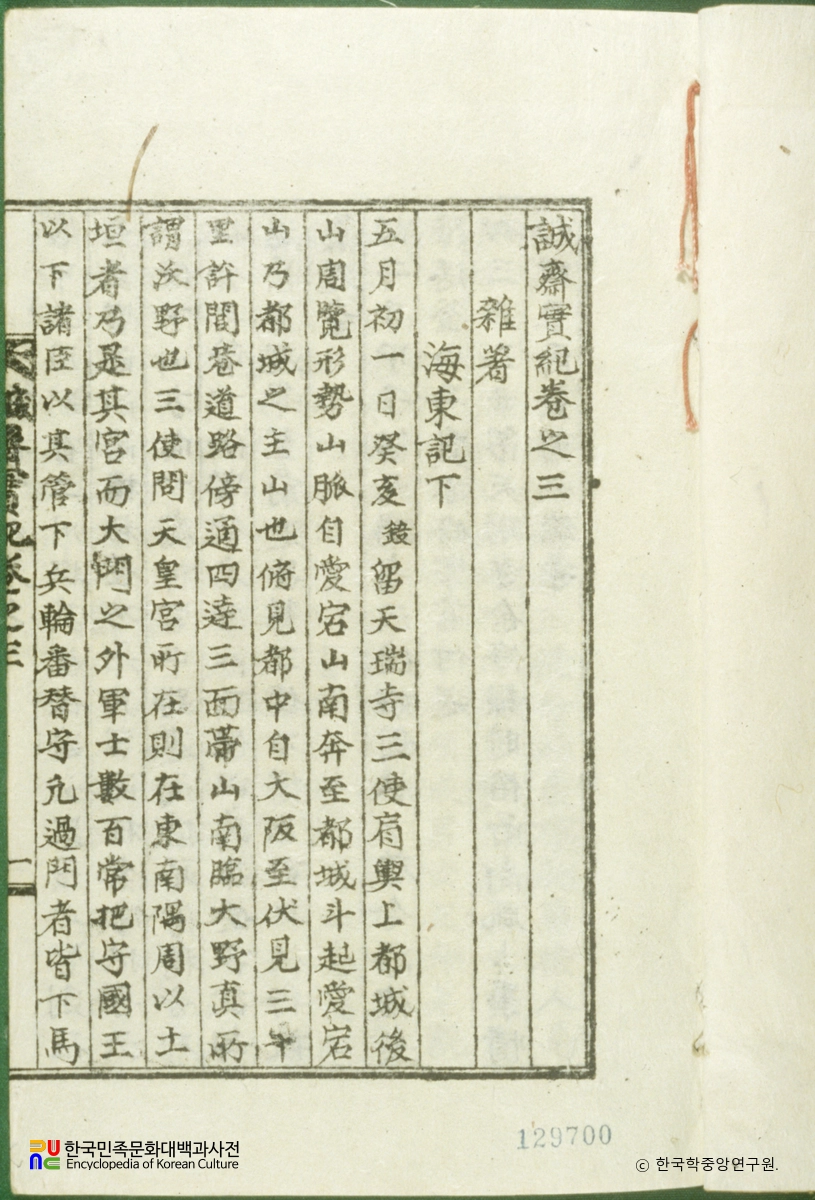 誠齋實紀卷之三
雜著
海東記下
五月初一日癸亥錢留天瑞寺三使肩輿上都城後
山周覽形勢山脈自愛宕山南奔至都城斗起愛宕
山乃都城之主山也俯見都中自大阪至伏見三十
里許閭巷道路傍通四達三面帶山南臨大野真所
謂沃野也三使問天皇宮所在則在東南隅周以土
垣者乃是其宮而大門之外軍士數百常把守國王
以下諸臣以其管下兵輪番替守凡過門者皆下馬
誠齋實紀卷之三
一
129700
한국민족문화대백과사전
Encyclopedia of Korean Culture
© 한국학중앙연구원.